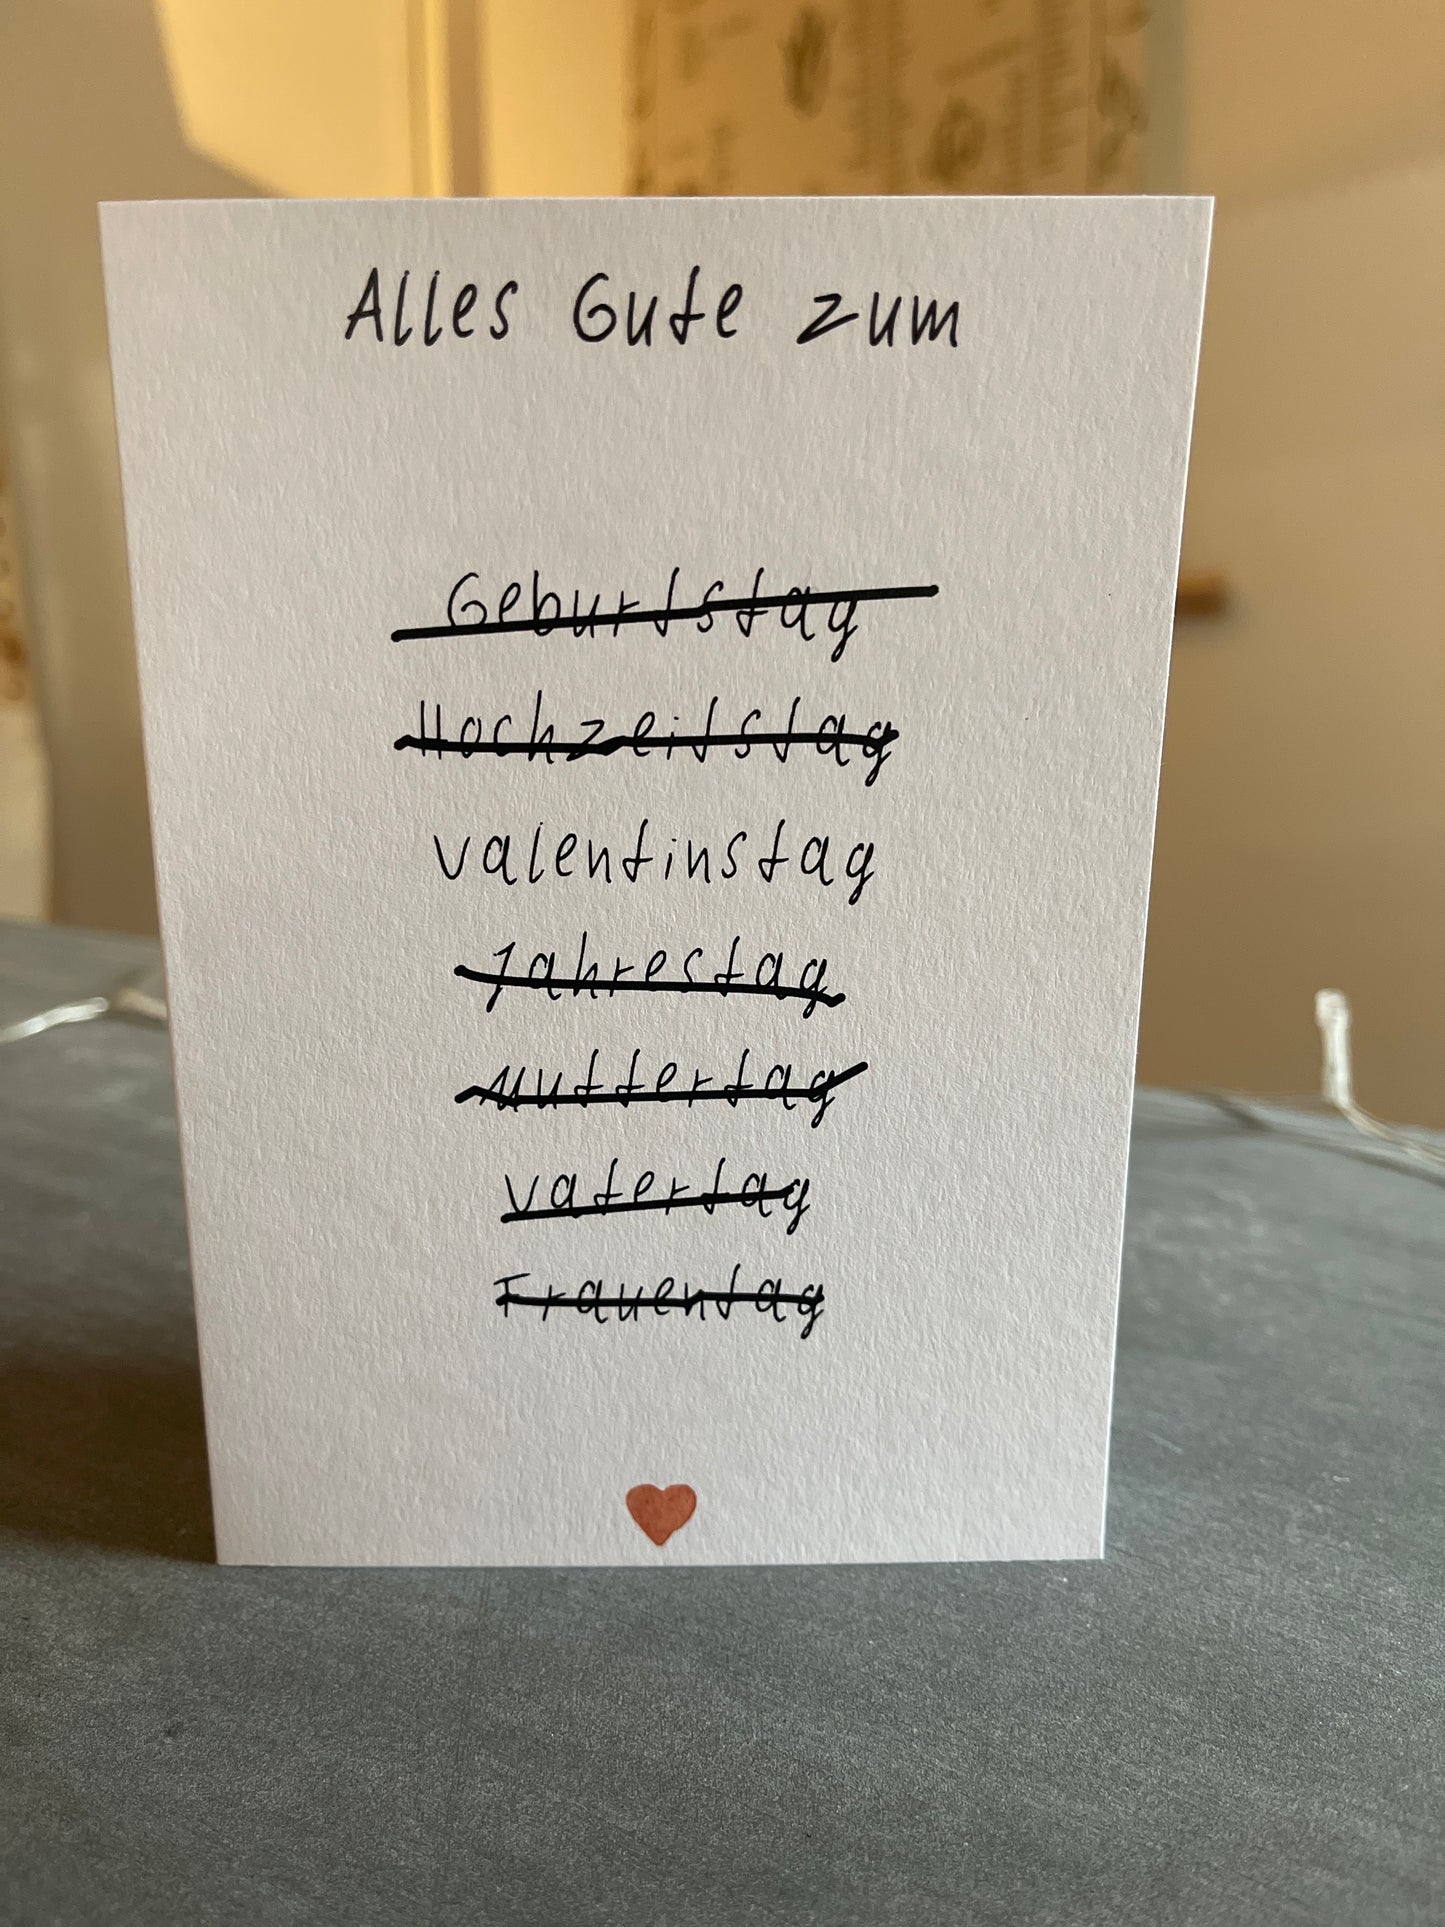 Alles Gute zum
Geburtstag
Hochzeitstag
Valentinstag
Jahrestag
Muttertag
Vatertag
Frauentag